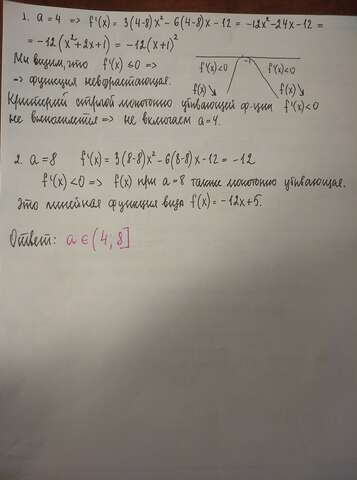 1. a = 4 => f'(x) = 3(4-8)x² - 6(4-8)x - 12 = -12x² - 24x - 12 =
= -12(x² + 2x + 1) = -12(x+1)²
Мы видим, что f'(x) ≤ 0 =>
=> функция невозрастающая.
f'(x)<0 -1 f'(x)<0
f(x) ↘ f(x) ↘
Критерий строгой монотонно убывающей ф-ции f'(x)<0
не выполняется => не включаем a=4.
2. a = 8 f'(x) = 3(8-8)x² - 6(8-8)x - 12 = -12
f'(x) < 0 => f(x) при a = 8 также монотонно убывающая.
Это линейная функция вида f(x) = -12x+5.
Ответ: a ∈ (4; 8]